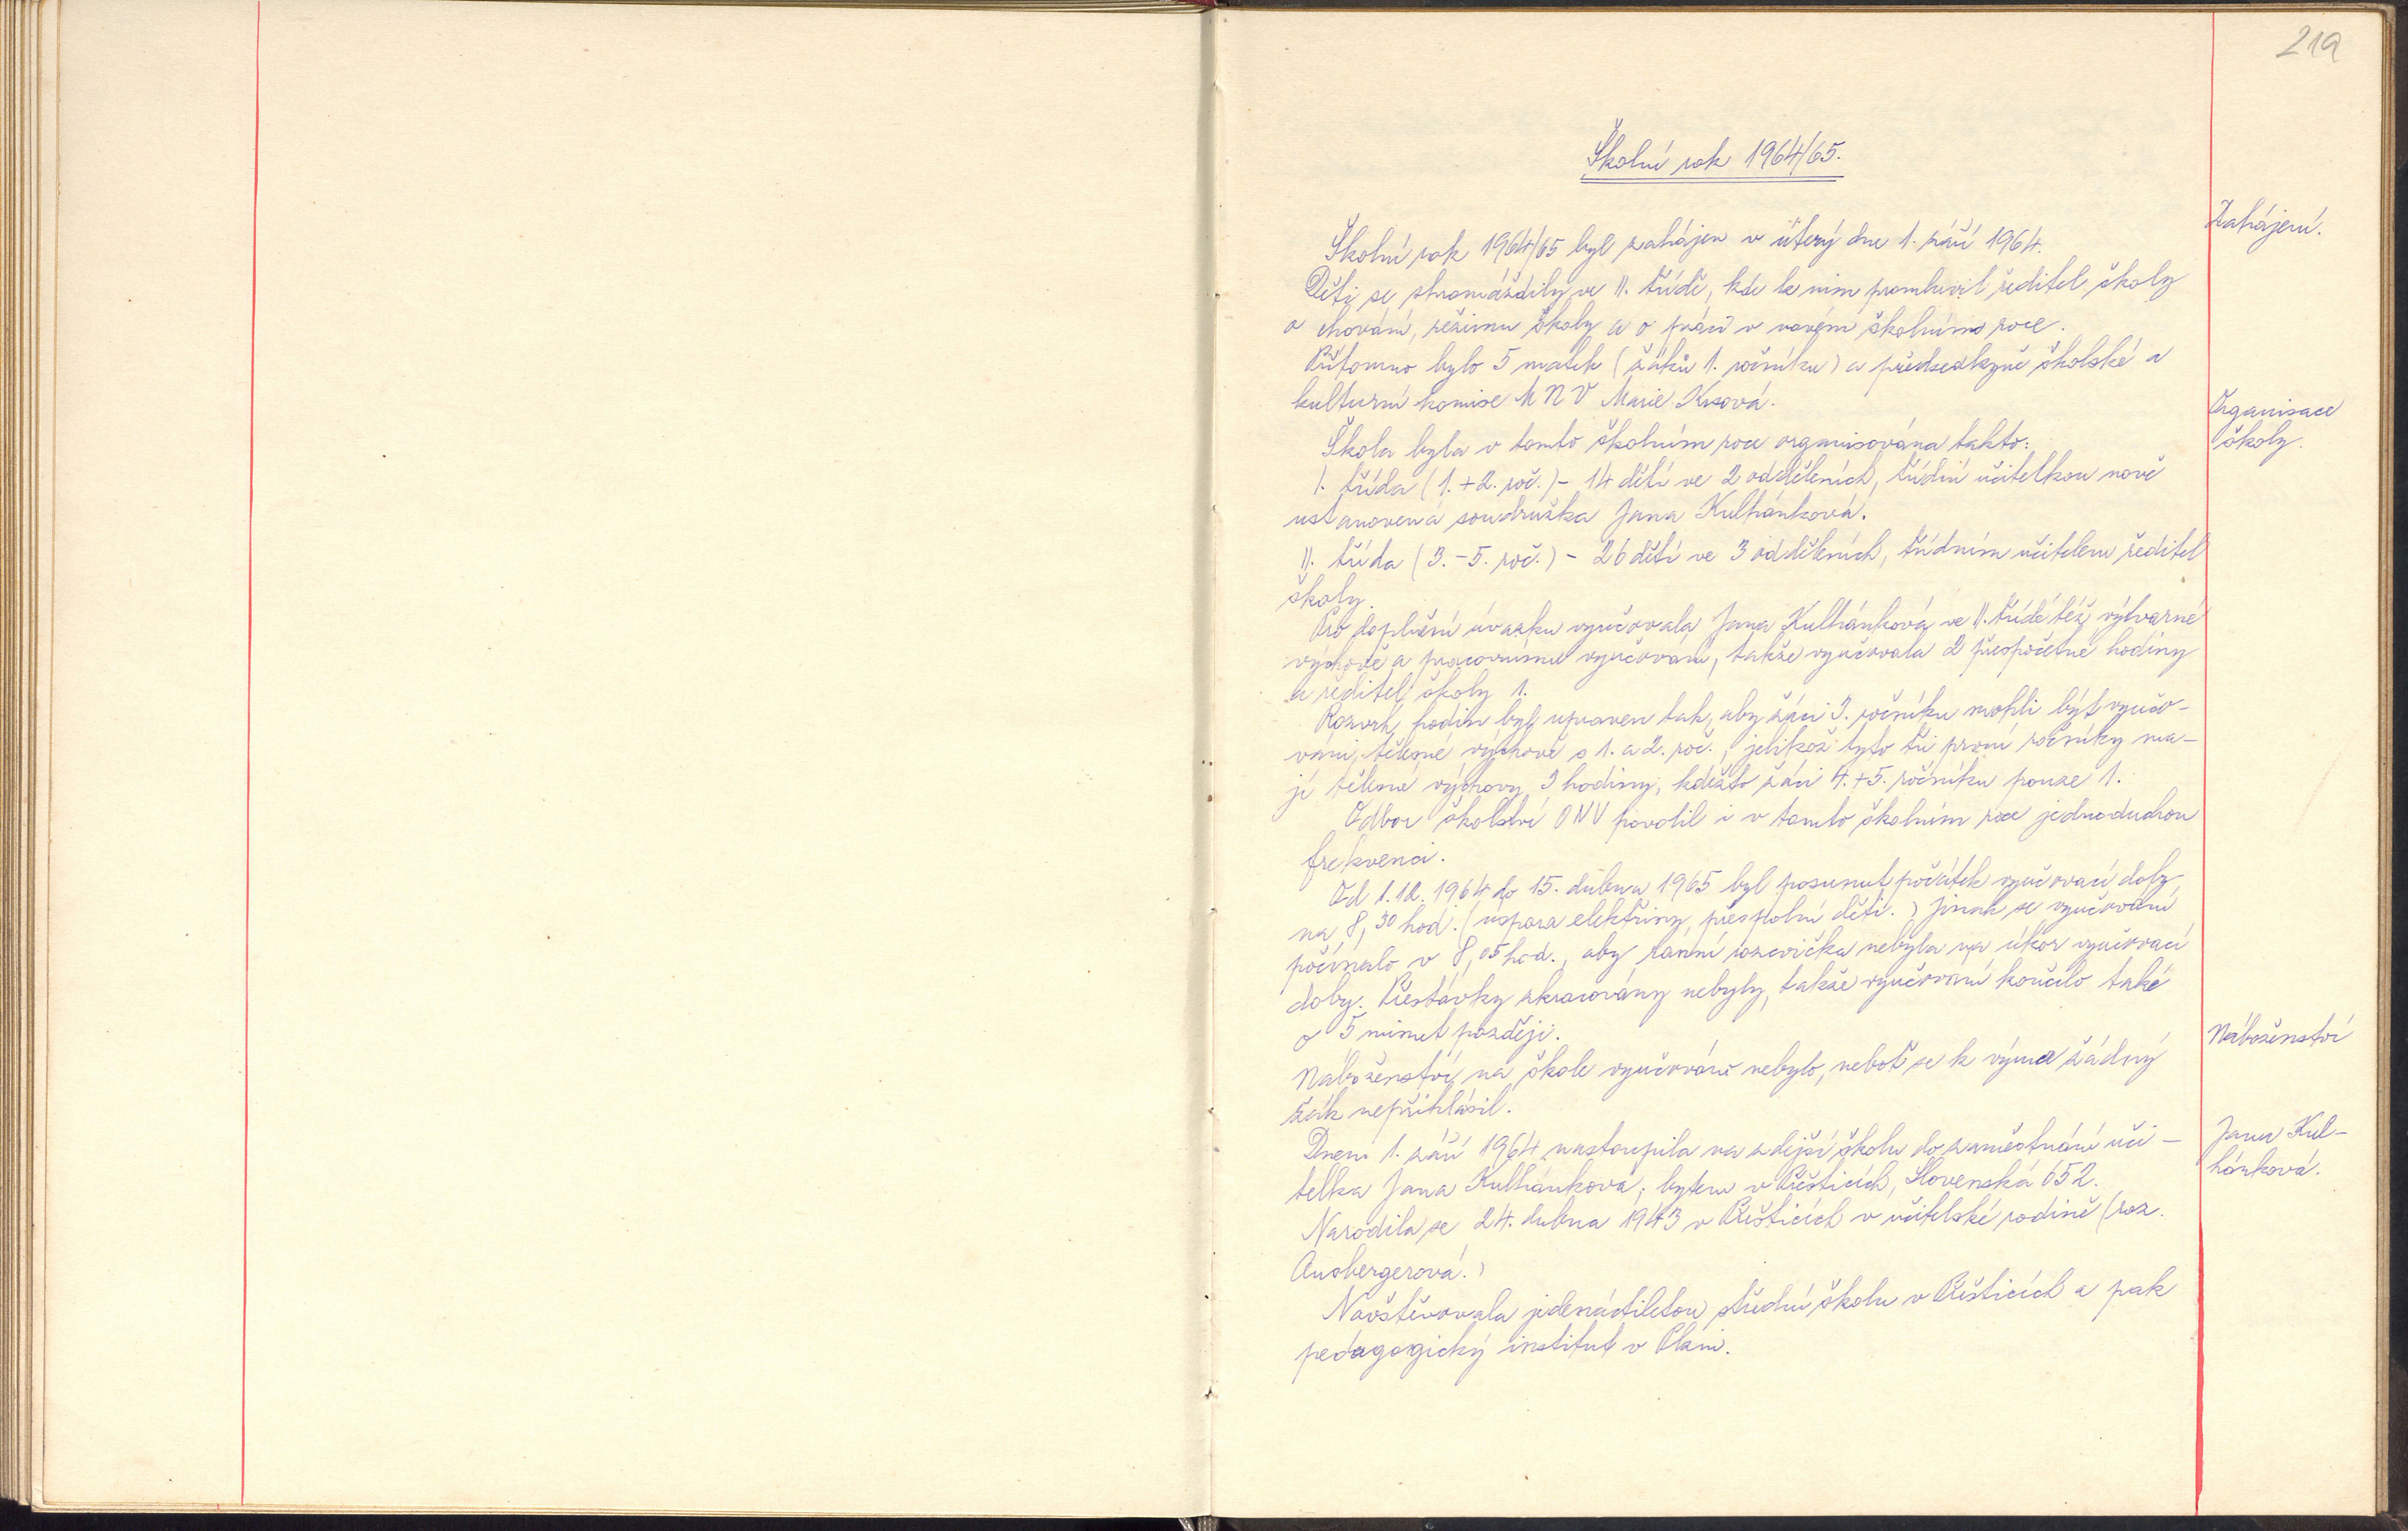 219
Školní rok 1964/65.
Zahájení.
Školní rok 1964/65 byl zahájen v úterý dne 1. září 1964.
Děti se shromáždily ve II. třídě, kde k nim promluvil ředitel školy
o chování, režimu školy a o práci v novém školním roce.
Přítomno bylo 5 matek (žáků 1. ročníku) a předsedkyně školské a
kulturní komise MNV Marie Krsová.
Organisace
školy.
Škola byla v tomto školním roce organisována takto:
I. třída (1.+2. roč.) - 14 dětí ve 2 odděleních, třídní učitelkou nově
ustanovená soudružka Jana Kulhánková.
II. třída (3.-5. roč.) - 26 dětí ve 3 odděleních, třídním učitelem ředitel
školy.
Pro doplnění úvazku vyučovala Jana Kulhánková ve II. třídě též výtvarné
výchově a pracovnímu vyučování, takže vyučovala 2 přespočetné hodiny
a ředitel školy 1.
Rozvrh hodin byl upraven tak, aby žáci 3. ročníku mohli být vyučo-
váni tělesné výchově s 1. a 2. roč., jelikož tyto tři první ročníky ma-
jí tělesné výchovy 3 hodiny, kdežto žáci 4.+5. ročníku pouze 1.
Odbor školství ONV povolil i v tomto školním roce jednoduchou
frekvenci.
Od 1.12.1964 do 15. dubna 1965 byl posunut počátek vyučovací doby
na 8,30 hod. (úspora elektřiny, přespolní děti.) Jinak se vyučování
počínalo v 8,05 hod., aby ranní rozcvička nebyla na úkor vyučovací
doby. Přestávky zkracovány nebyly, takže vyučování končilo také
o 5 minut později.
Náboženství
Náboženství na škole vyučováno nebylo, neboť se k výuce žádný
žák nepřihlásil.
Jana Kul-
hánková.
Dnem 1. září 1964 nastoupila na zdejší školu do zaměstnání uči-
telka Jana Kulhánková, bytem v Přešticích, Slovenská 652.
Narodila se 24. dubna 1943 v Přešticích v učitelské rodině (roz.
Ausbergerová.)
Navštěvovala jedenáctiletou střední školu v Přešticích a pak
pedagogický institut v Plzni.